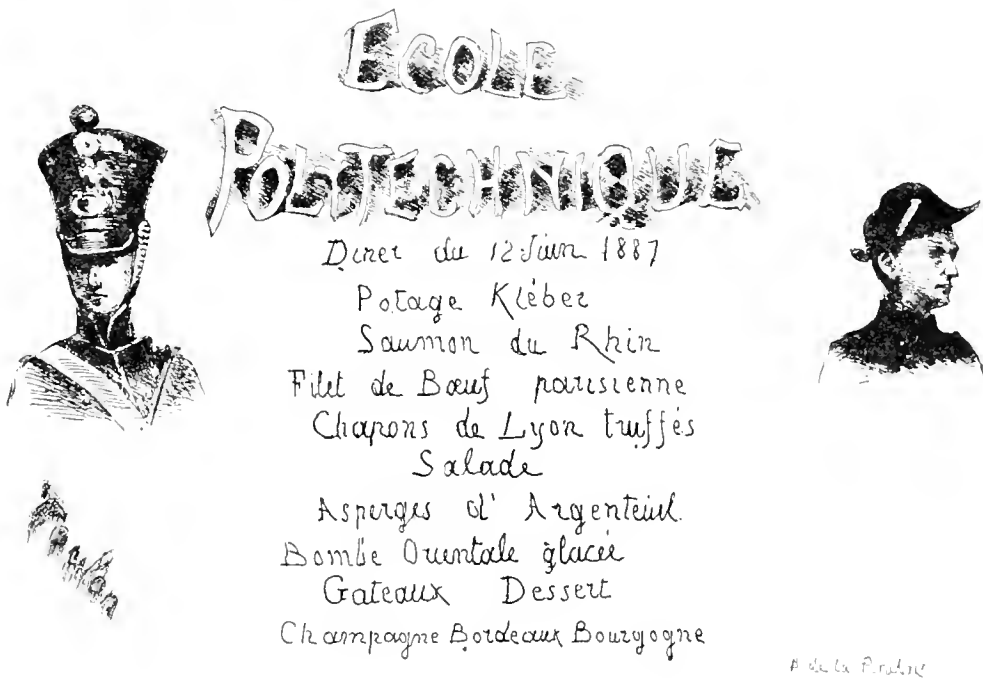 ECOLE
POLYTECHNIQUE
Diner du 12 Juin 1887
Potage Kléber
Saumon du Rhin
Filet de Bœuf parisienne
Chapons de Lyon truffés
Salade
Asperges d'Argenteuil.
Bombe Orientale glacée
Gateaux Dessert
Champagne Bordeaux Bourgogne
A de la